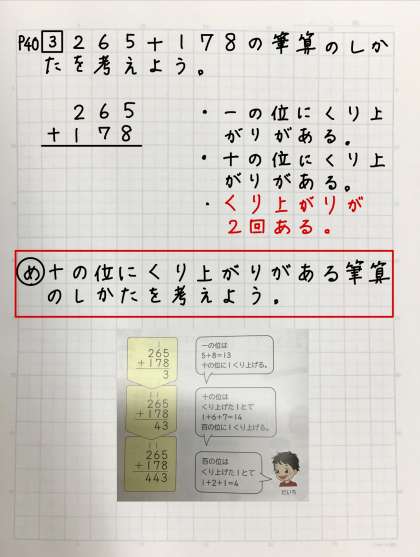 P40 3 265+178の筆算のしか
たを考えよう。
265
+178
・一の位にくり上
がりがある。
・十の位にくり上
がりがある。
・くり上がりが
2回ある。
め 十の位にくり上がりがある筆算
のしかたを考えよう。
1
265
+178
3
一の位は
5+8=13
十の位に1くり上げる。
11
265
+178
43
十の位は
くり上げた1とで
1+6+7=14
百の位に1くり上げる。
11
265
+178
443
百の位は
くり上げた1とで
1+2+1=4
だいち